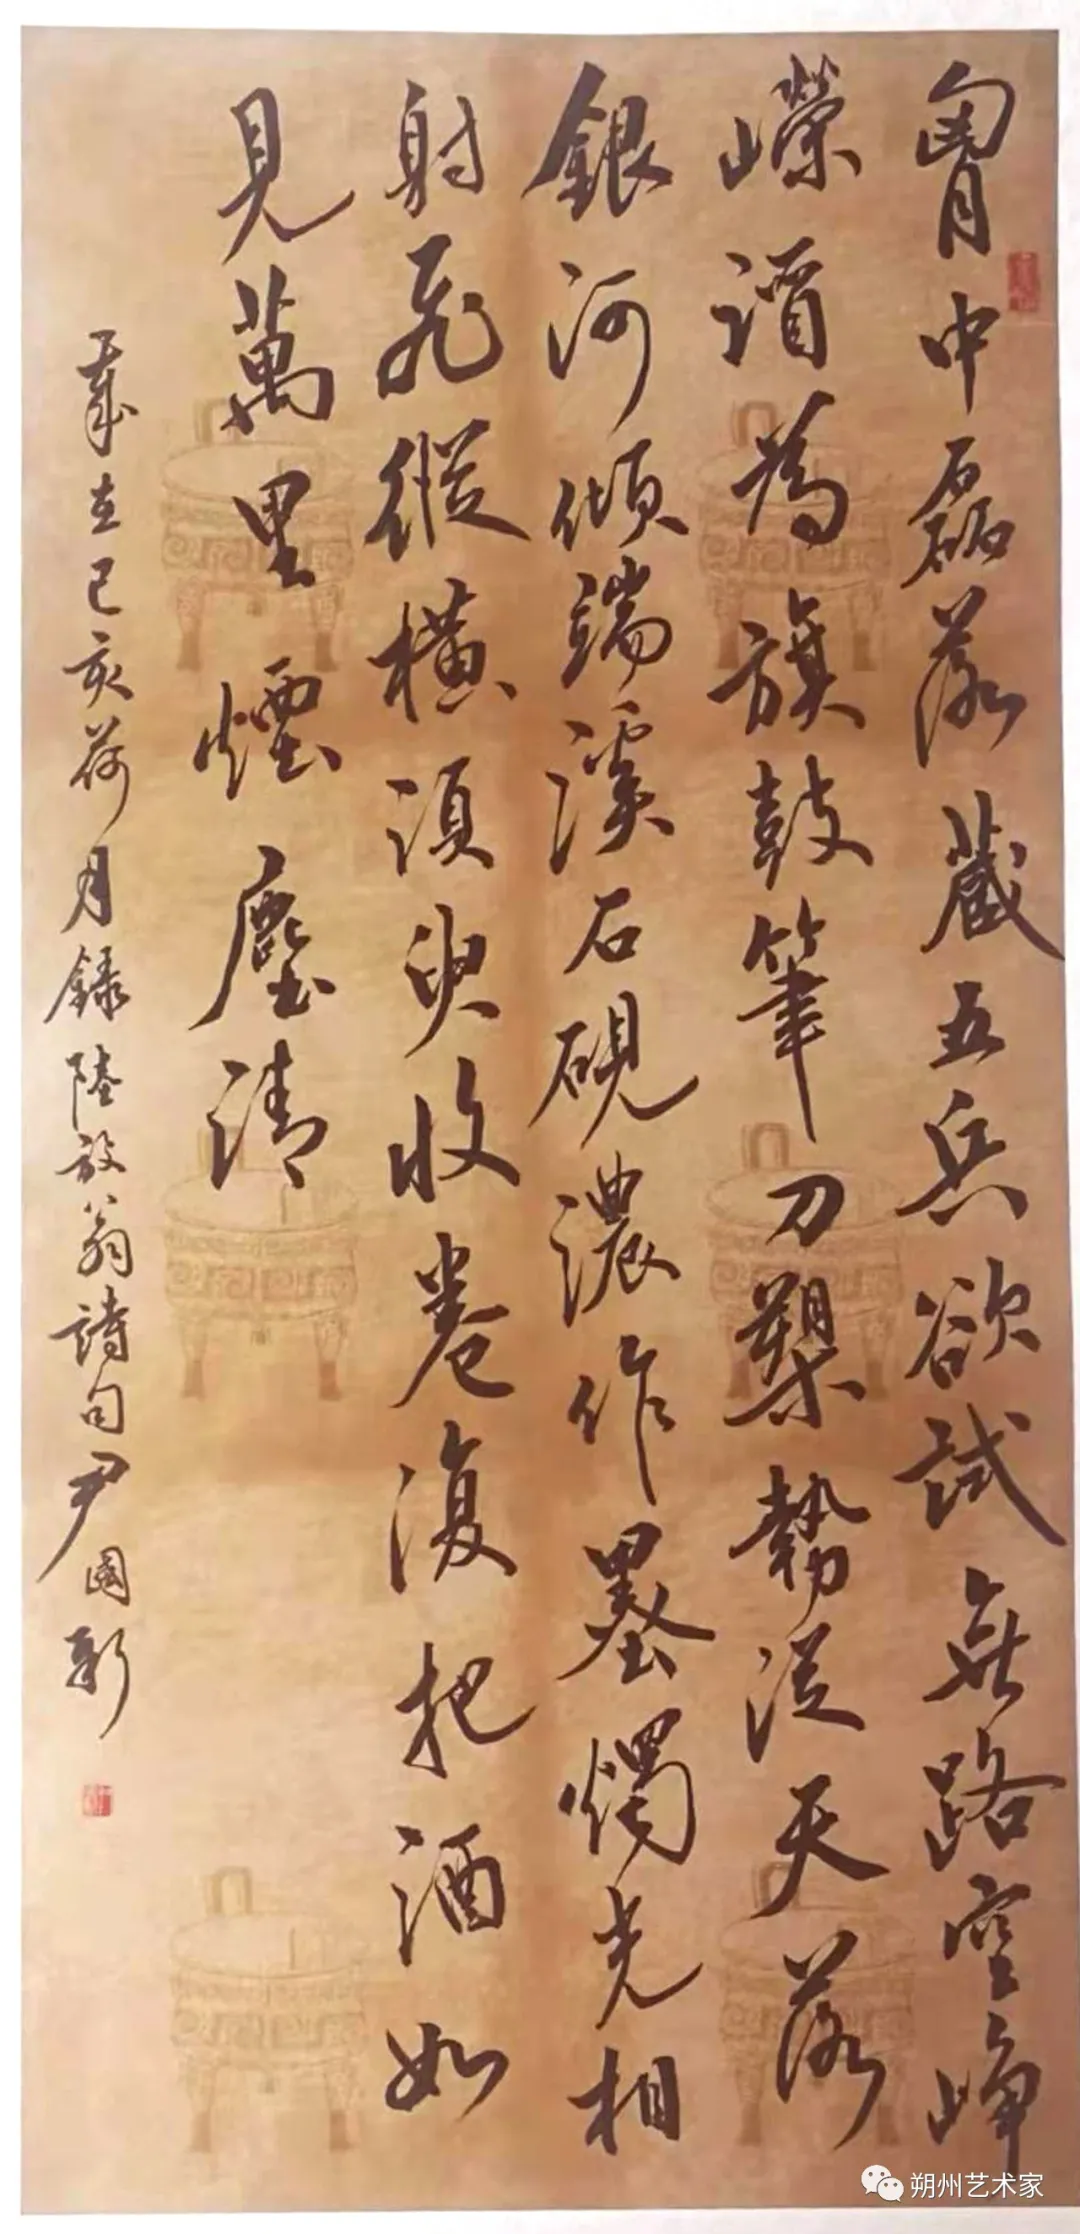 胷中磊落藏五兵欲試無路空崢
嶸酒為旗鼓筆刀槊勢從天落
銀河傾端溪石硯濃作墨燭光相
射飛縱橫須臾收卷復把酒如
見萬里煙塵清
歲在己亥荷月錄陸放翁詩句尹國新
朔州艺术家